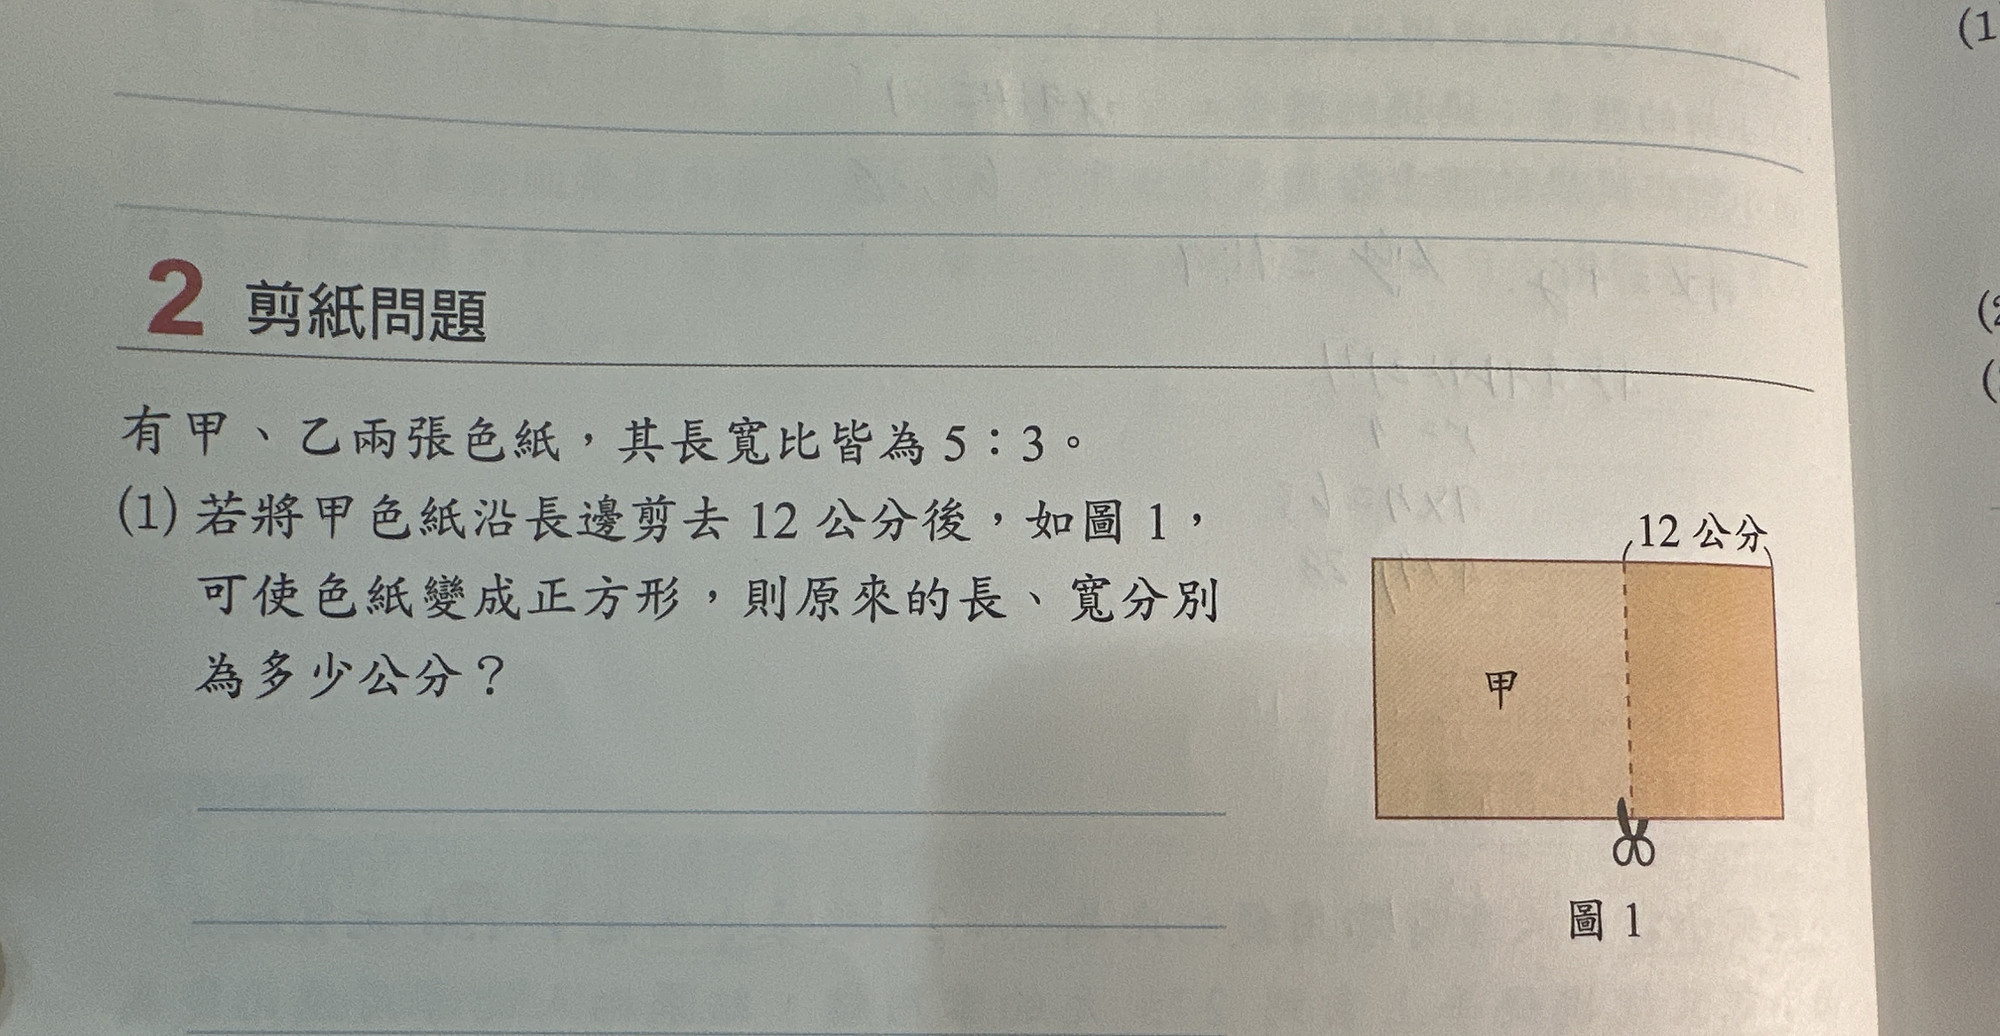 2 剪紙問題
有甲、乙兩張色紙，其長寬比皆為5：3。
(1) 若將甲色紙沿長邊剪去 12 公分後，如圖 1，
可使色紙變成正方形，則原來的長、寬分別
為多少公分？
12 公分
甲
圖 1
(1
(2